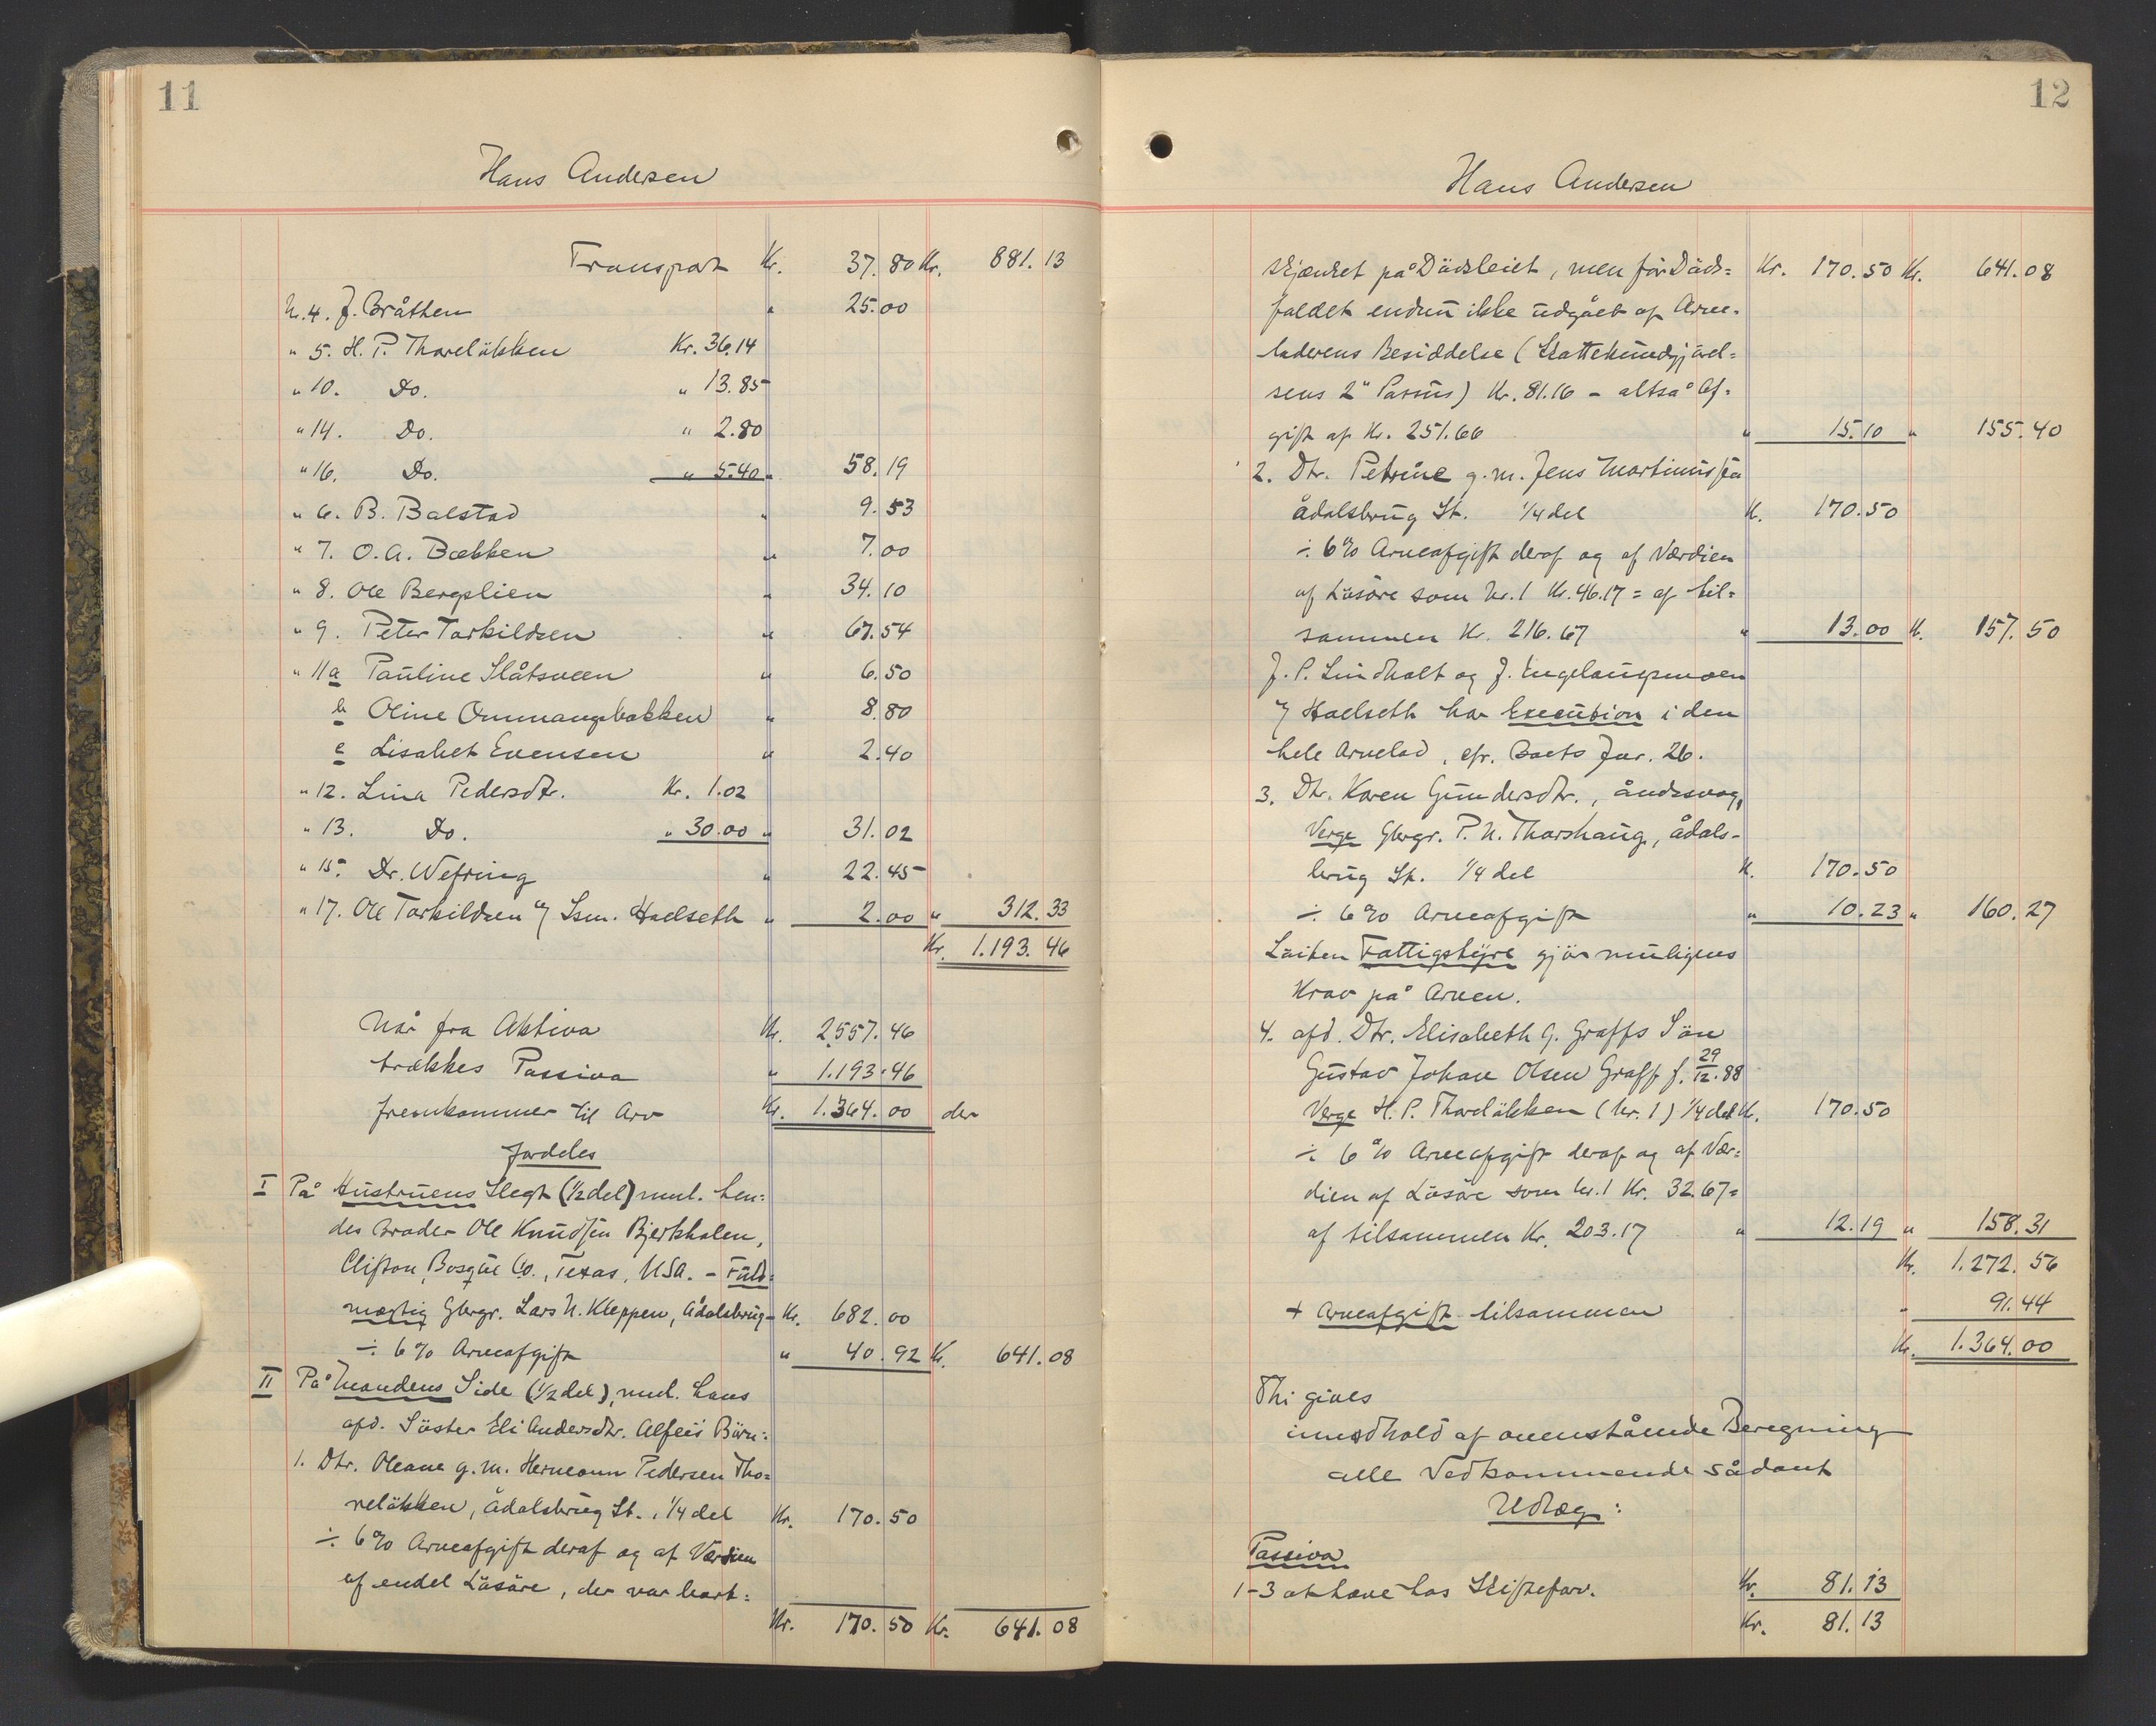 11
Hans Andersen
Transport Kr. 37.80 Kr. 881.13
N. 4. J. Bråthen " 25.00
" 5. H. P. Thoreløkken Kr. 36.14
" 10. Do. " 13.85
" 14. Do. " 2.80
" 16. Do. " 5.40 " 58.19
" 6. B. Balstad " 9.53
" 7. O. A. Bækken " 7.00
" 8. Ole Bergslien " 34.10
" 9. Peter Torkildsen " 67.54
" 11 a Pauline Slåtsveen " 6.50
b Oline Ommangsbakken " 8.80
c Lisabet Evensen " 2.40
" 12. Lina Pedersdtr. Kr. 1.02
" 13. Do. " 30.00 " 31.02
" 15. Dr. Wefring " 22.45
" 17. Ole Torkildsen v/ Lsm. Hoelseth " 2.00 " 312.33
Kr. 1.193.46
Når fra Aktiva Kr. 2557.46
trækkes Passiva " 1.193.46
fremkommer til Arv Kr. 1.364.00 der
fordeles
I På Hustruens Slegt (1/2 del) nml. hen=
des Broder Ole Knudsen Bjerkholen,
Clifton, Bosque Co., Texas, USA. - Fuld=
mægtig Gbrgr. Lars N. Kleppen, Ådalsbrug - Kr. 682.00
÷ 6% Arveafgift " 40.92 Kr. 641.08
II På Mandens Side (1/2 del), nml. hans
afd. Søster Eli Andersdtr. Alfeis Børn:
1. Dtr. Oleane g. m. Hermann Pedersen Tho=
reløkken, Ådalsbrug St., 1/4 del Kr. 170.50
÷ 6% Arveafgift deraf og af Værdien
af endel Løsøre, der var bort=
Kr. 170.50 Kr. 641.08
12
Hans Andersen
skjænket på Dødsleiet, men før Døds= Kr. 170.50 Kr. 641.08
faldet endnu ikke udgået af Arve=
laderens Besiddelse (Skattekundgjørel=
sens 2" Passus) Kr. 81.16 - altså Af=
gift af Kr. 251.66 " 15.10 " 155.40
2. Dtr. Petrine g. m. Jens Martinussen
Ådalsbrug St. 1/4 del K. 170.50
÷ 6% Arveafgift deraf og af Værdien
af Løsøre som Nr. 1 Kr. 46.17 = af til=
sammen Kr. 216.67 " 13.00 K. 157.50
J. P. Lindholt og J. Engelaugsmoen
v/ Hoelseth har Execution i den
hele Arvelod, cfr. Boets Jur. 26.
3. Dtr. Karen Gundersdtr., åndssvag,
Verge Gbrgr. P. N. Thorshaug, Ådals-
brug St. 1/4 del K. 170.50
÷ 6% Arveafgift " 10.23 " 160.27
Løiten Fattigstyre gjør muligens
Krav på Arven.
4. afd. Dtr. Elisabeth G. Graffs Søn
Gustav Johan Olsen Graff f. 29/12.88
Verge H. P. Thoreløkken (Nr. 1) 1/4 del K. 170.50
÷ 6% Arveafgift deraf og af Vær=
dien af Løsøre som Nr. 1 Kr. 32.67 =
af tilsammen Kr. 203.17 " 12.19 " 158.31
Kr. 1.272.56
+ Arveafgift tilsammen " 91.44
Kr. 1.364.00
Thi gives
innedhold af ovenstående Beregning
alle Vedkommende sådant
Udlæg:
Passiva
1-3 at have hos Skifteforv. Kr. 81.13
Kr. 81.13